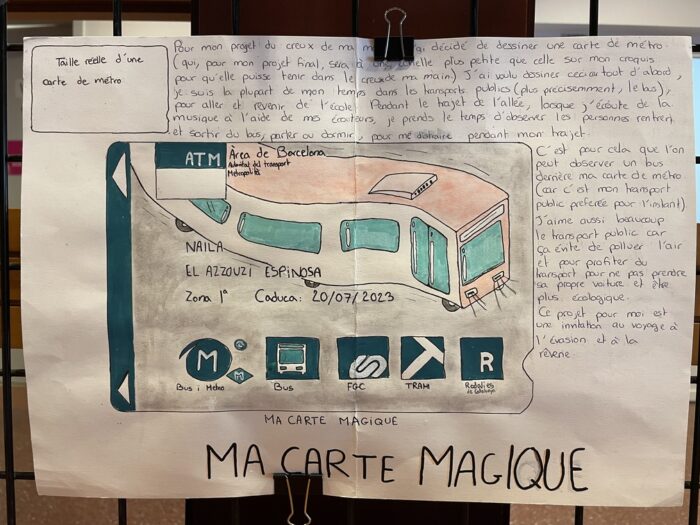 Taille réelle d'une
carte de métro
Pour mon projet du creux de ma m ai décidé de dessiner une carte de métro.
(qui, pour mon projet final, sera à une échelle plus petite que celle sur mon croquis
pour qu'elle puisse tenir dans le creux de ma main) J'ai voulu dessiner ceci car tout d'abord,
je suis la plupart de mon temps dans les transports publics (plus précisement, le bus),
pour aller et revenir de l'école. Pendant le trajet de l'allée, lorsque j'écoute de la
musique à l'aide de mes écouteurs, je prends le temps d'observer les personnes rentrer
et sortir du bus, parler ou dormir, pour me distraire pendant mon trajet.
C'est pour cela que l'on
peut observer un bus
derrière ma carte de métro
(car c'est mon transport
public préférée pour l'instant)
J'aime aussi beaucoup
le transport public car
ça évite de polluer l'air
et pour profiter du
transport pour ne pas prendre
sa propre voiture et être
plus écologique.
Ce projet pour moi est
une invitation au voyage à
l'évasion et à la
rêverie
ATM
Àrea de Barcelona
Autoritat del transport
Metropolità
NAILA
EL AZZOUZI ESPINOSA
Zona 1ª Caduca: 20/07/2023
M
M
R
Bus i Metro
Bus
FGC
TRAM
Rodalies
de Catalunya
MA CARTE MAGIQUE
MA CARTE MAGIQUE